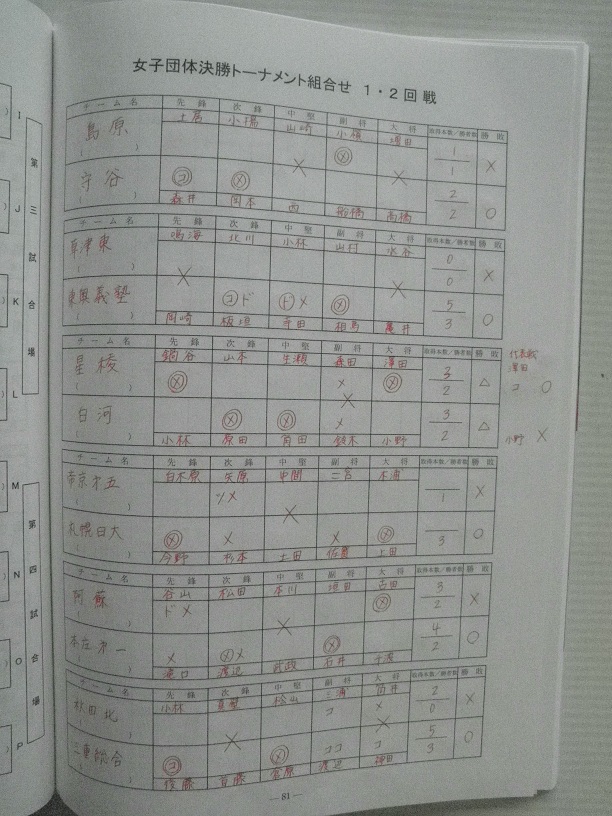 女子団体決勝トーナメント組合せ 1・2回戦
チーム名 先鋒 次鋒 中堅 副将 大将 取得本数/勝者数 勝敗
島原 土居 小陽 山崎 小嶺 1/1 ×
守谷 コ メ × メ × 2/2 ○
森井 岡本 西 船橋 高橋
チーム名 先鋒 次鋒 中堅 副将 大将 取得本数/勝者数 勝敗
草津東 鳴海 北川 小林 山村 水谷 0/0 ×
東奥義塾 × コド ドメ メ × 5/3 ○
岡崎 板垣 寺田 相馬 亀井
チーム名 先鋒 次鋒 中堅 副将 大将 取得本数/勝者数 勝敗
星稜 鍋谷 山本 生瀬 森田 澤田 3/2 △
メ メ メ
代表戦
澤田
コ ○
白河 メ メ メ 3/2 △
小林 原田 角田 鈴木 小野
小野 ×
チーム名 先鋒 次鋒 中堅 副将 大将 取得本数/勝者数 勝敗
帝京才五 白木原 矢原 中間 二宮 木浦 1 ×
ツメ
札幌日大 メ メ × メ メ 3 ○
今野 杉本 土田 佐賀 上田
チーム名 先鋒 次鋒 中堅 副将 大将 取得本数/勝者数 勝敗
阿蘇 谷山 松田 本川 垣田 古田 3/2 ×
ドメ メ
本庄才一 メ メメ × メ 4/2 ○
滝口 渡辺 武政 石井
チーム名 先鋒 次鋒 中堅 副将 大将 取得本数/勝者数 勝敗
秋田北 小林 桧山 三浦 向井 2/0 ×
コ メ
三重総合 コ × メ ココ コ 5/3 ○
後藤 首藤 宮原 渡辺 神田
― 81 ―
I
J
K
L
M
N
O
P
第三試合場
第四試合場